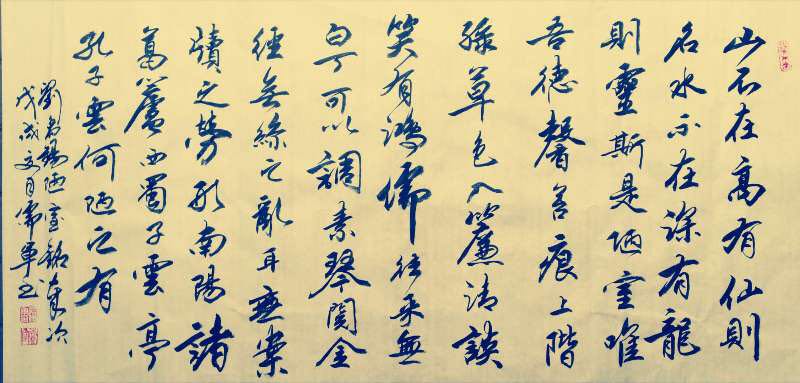 山不在高有仙則
名水不在深有龍
則靈斯是陋室唯
吾德馨苔痕上階
綠草色入簾清談
笑有鴻儒往來無
白丁可以調素琴閱金
經無絲之亂耳無案
牘之勞形南陽諸
葛廬西蜀子雲亭
孔子雲何陋之有
劉禹錫陋室銘歲次
戊戌月常軍书